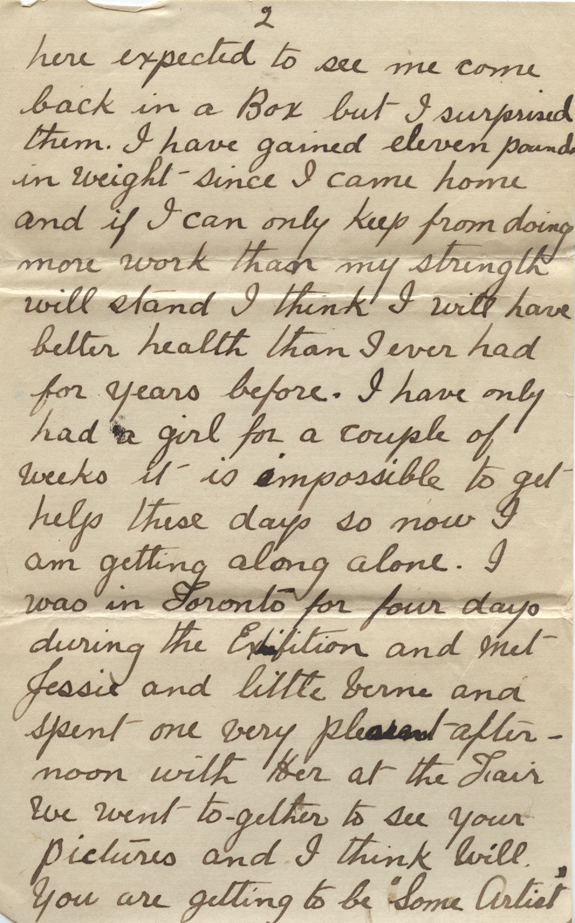 2
here expected to see me come
back in a Box but I surprised
them. I have gained eleven pounds
in weight since I came home
and if I can only keep from doing
more work than my strength
will stand I think I will have
better health than I ever had
for years before. I have only
had a girl for a couple of
weeks it is impossible to get
help these days so now I
am getting along alone. I
was in Toronto for four days
during the Exibition and met
Jessie and little Verne and
spent one very pleasent after-
noon with Her at the Fair
We went to-gether to see your
pictures and I think Will.
You are getting to be "Some Artist"